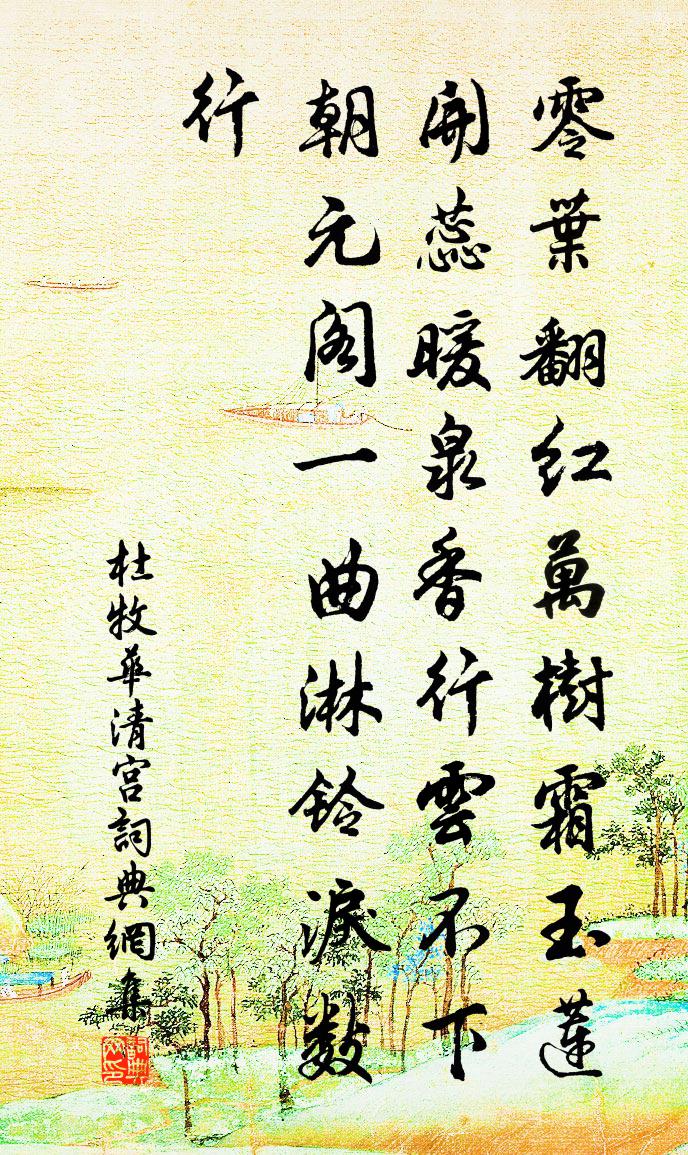 零葉翻紅萬樹霜玉蓮
開蕊暖泉香行雲不下
朝元阁一曲淋鈴淚数
行
杜牧華清宫詞典網集